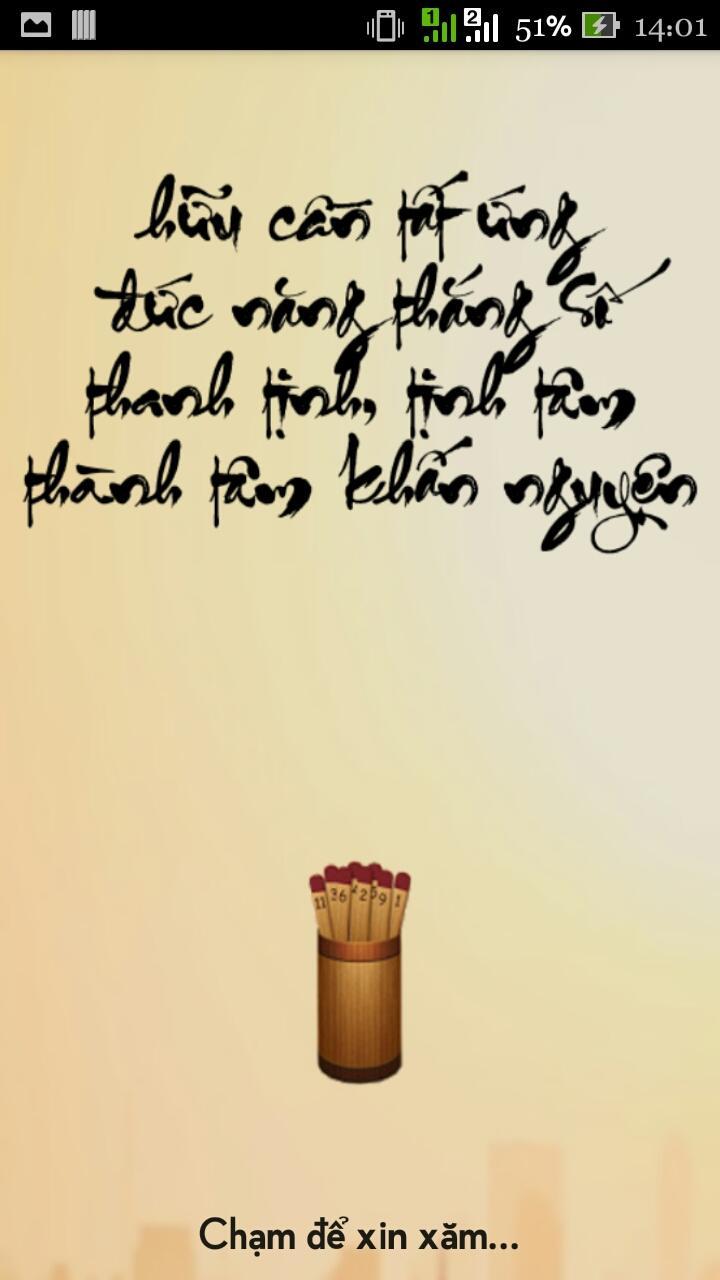 51% 14:01
hữu cần tất ứng
đức năng thắng số
thanh tịnh, tịnh tâm
thành tâm khấn nguyện
11 36 2 5 9 1
Chạm để xin xăm...